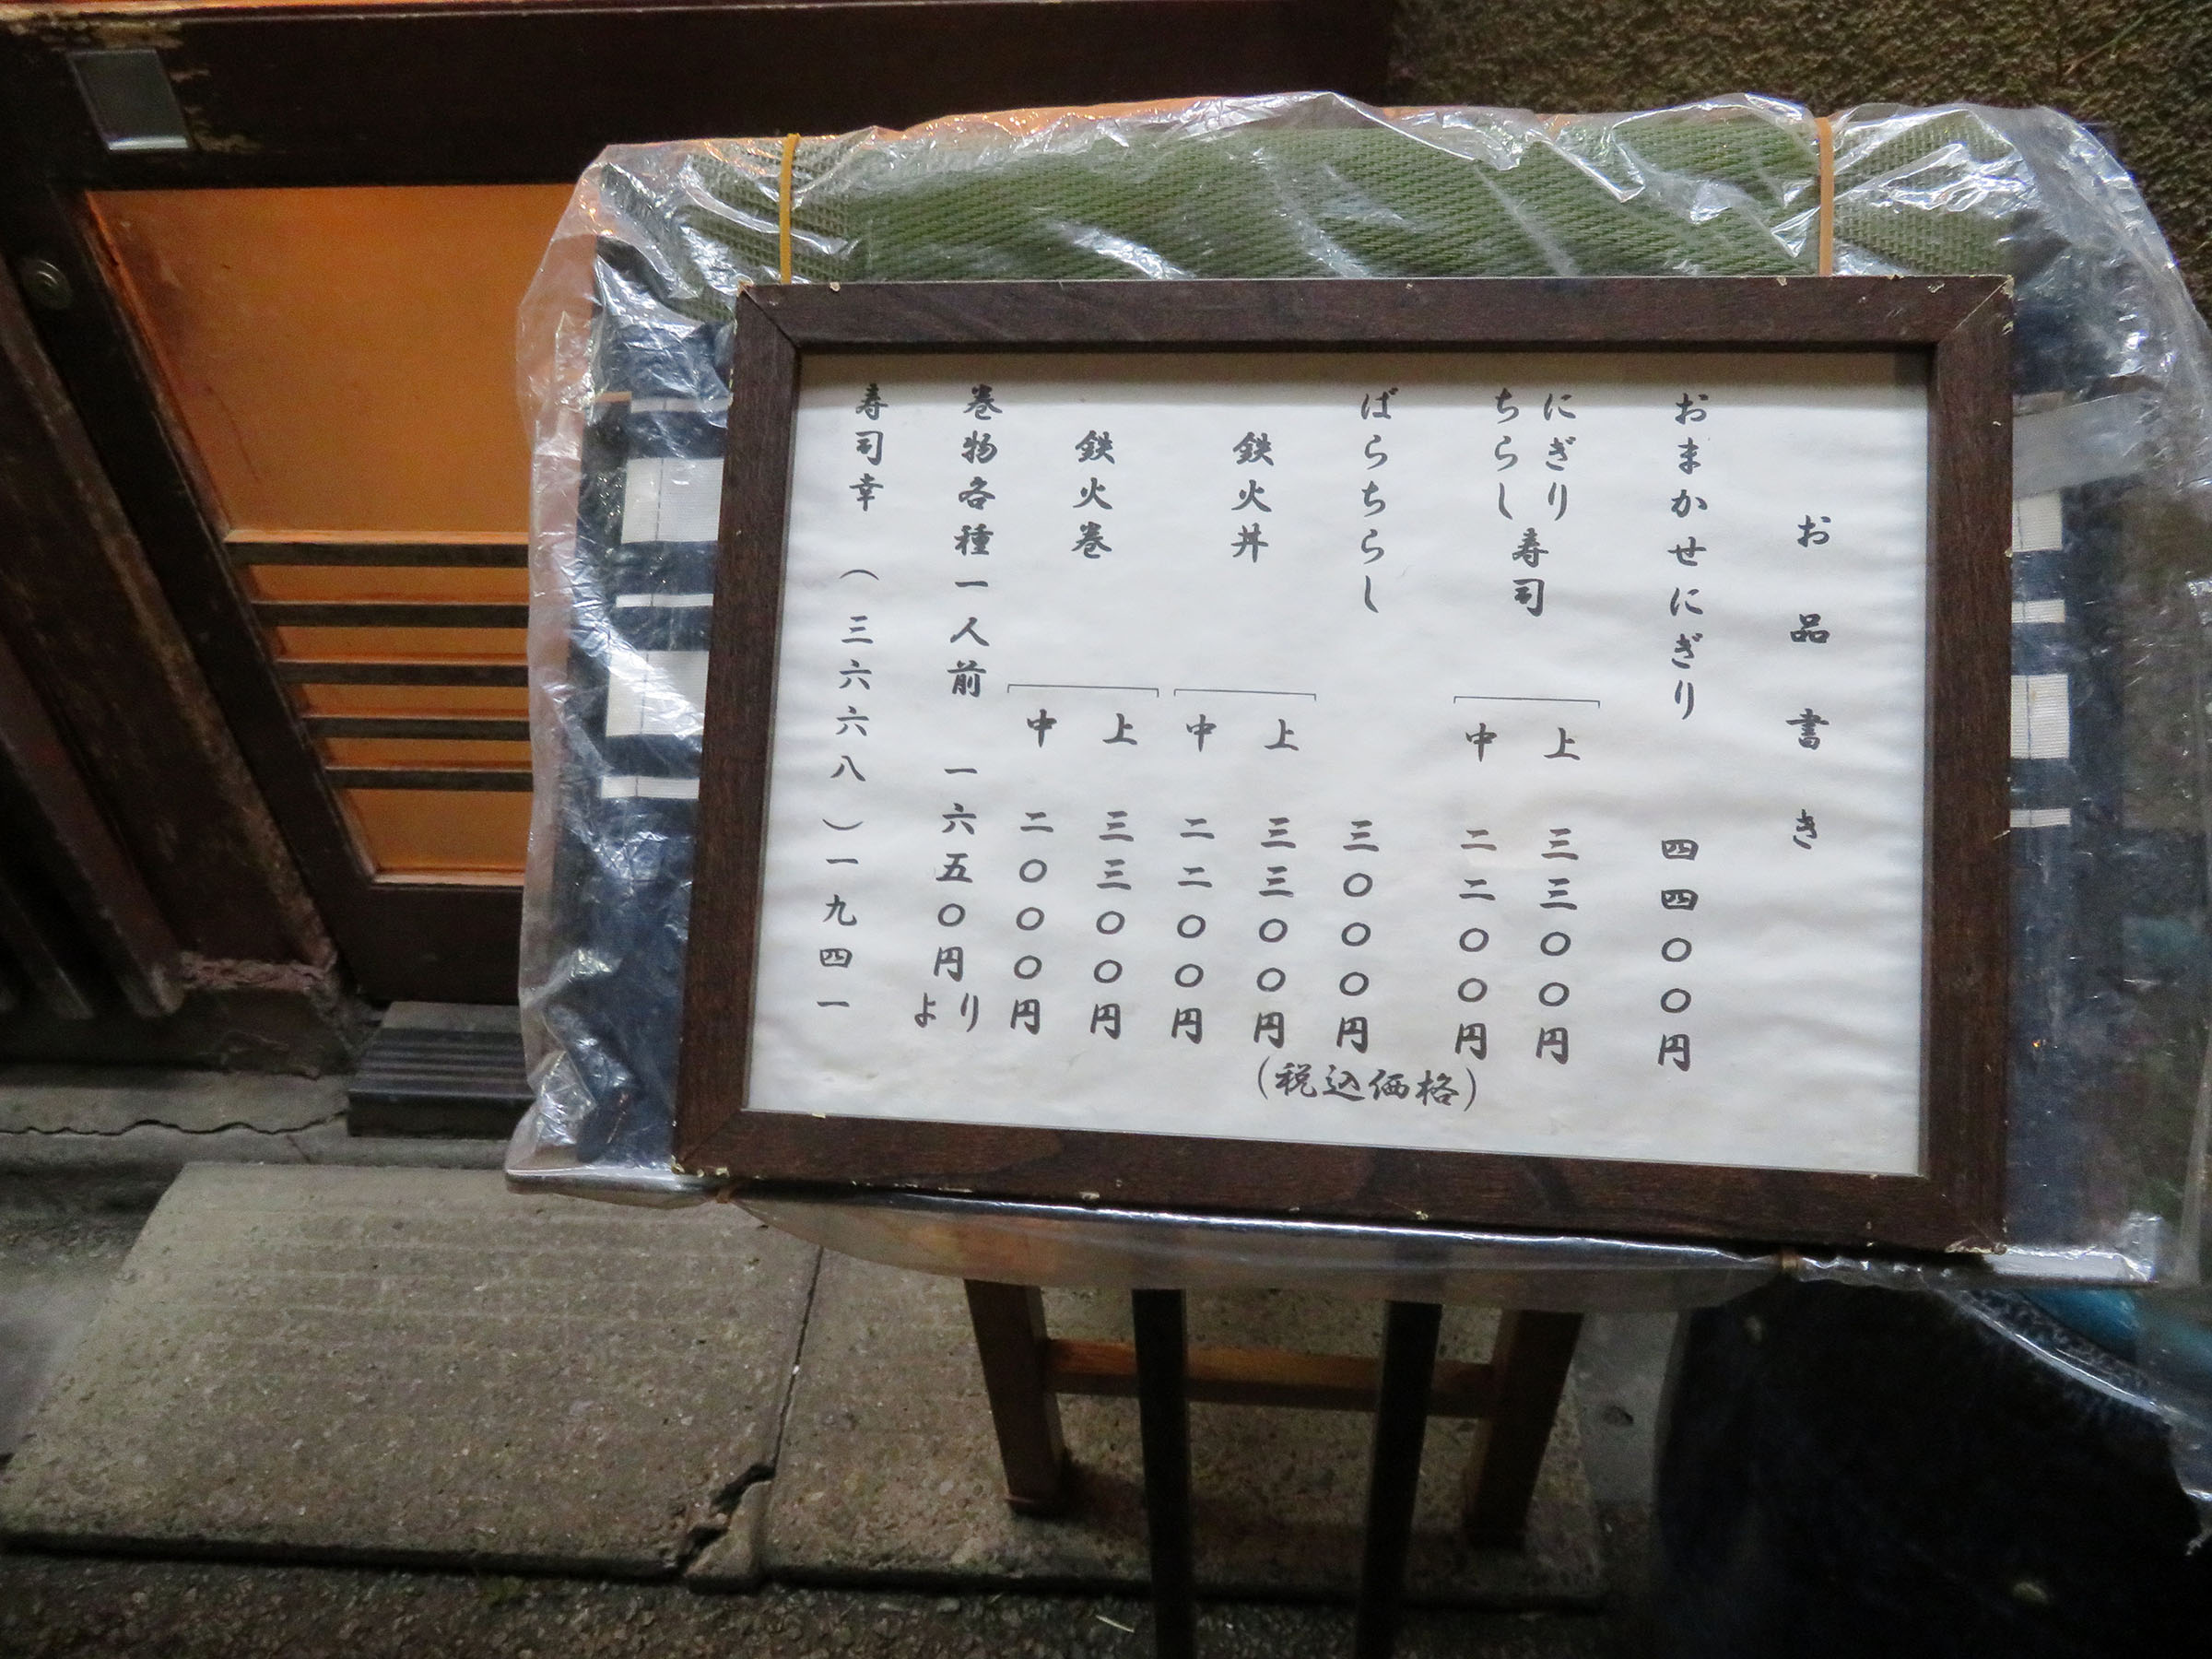 お品書き
おまかせにぎり 四四〇〇円
にぎり
ちらし
寿司
上 三三〇〇円
中 二二〇〇円
ばらちらし 三〇〇〇円
鉄火丼
上 三三〇〇円
中 二二〇〇円
鉄火巻
上 三三〇〇円
中 二〇〇〇円
巻物各種一人前 一六五〇円より
寿司幸 (三六六八)一九四一
(税込価格)